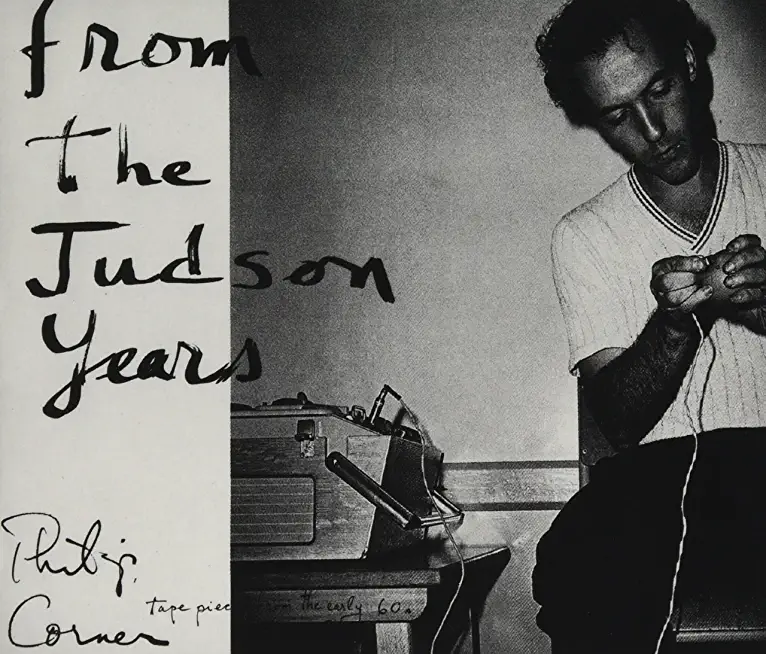 from
the
Judson
Years
Philip
Corner
tape piec from the early 60s